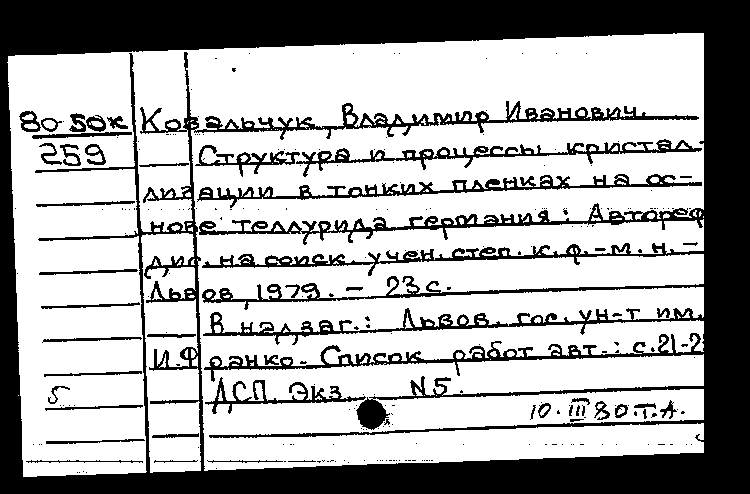 80-50к Ковальчук, Владимир Иванович.
259 Структура и процессы кристал-
лизации в тонких пленках на ос-
нове теллурида германия: Автореф
дис. на соиск. учен. степ. к.ф.-м.н. -
Львов, 1979. - 23с.
В надзаг.: Львов. гос. ун-т им.
И.Франко. Список работ авт.: с.21-2
5 ДСП. Экз. N5.
10.III 80.Т.А.